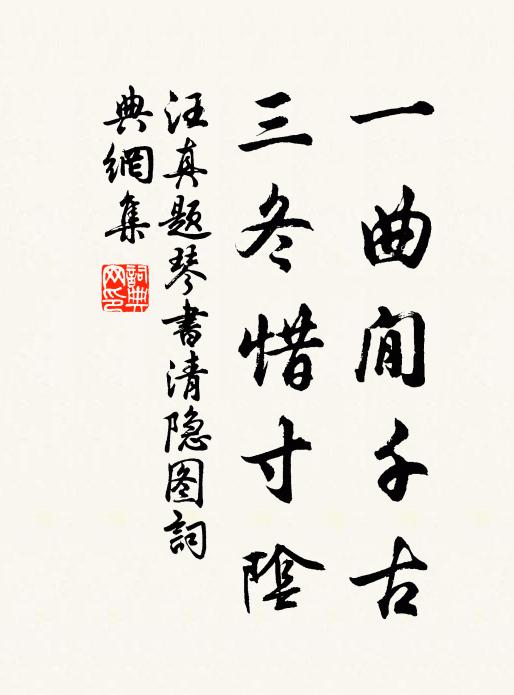 一曲閒千古
三冬惜寸陰
汪真题琴書清隐图詞
典網集
詞典網印